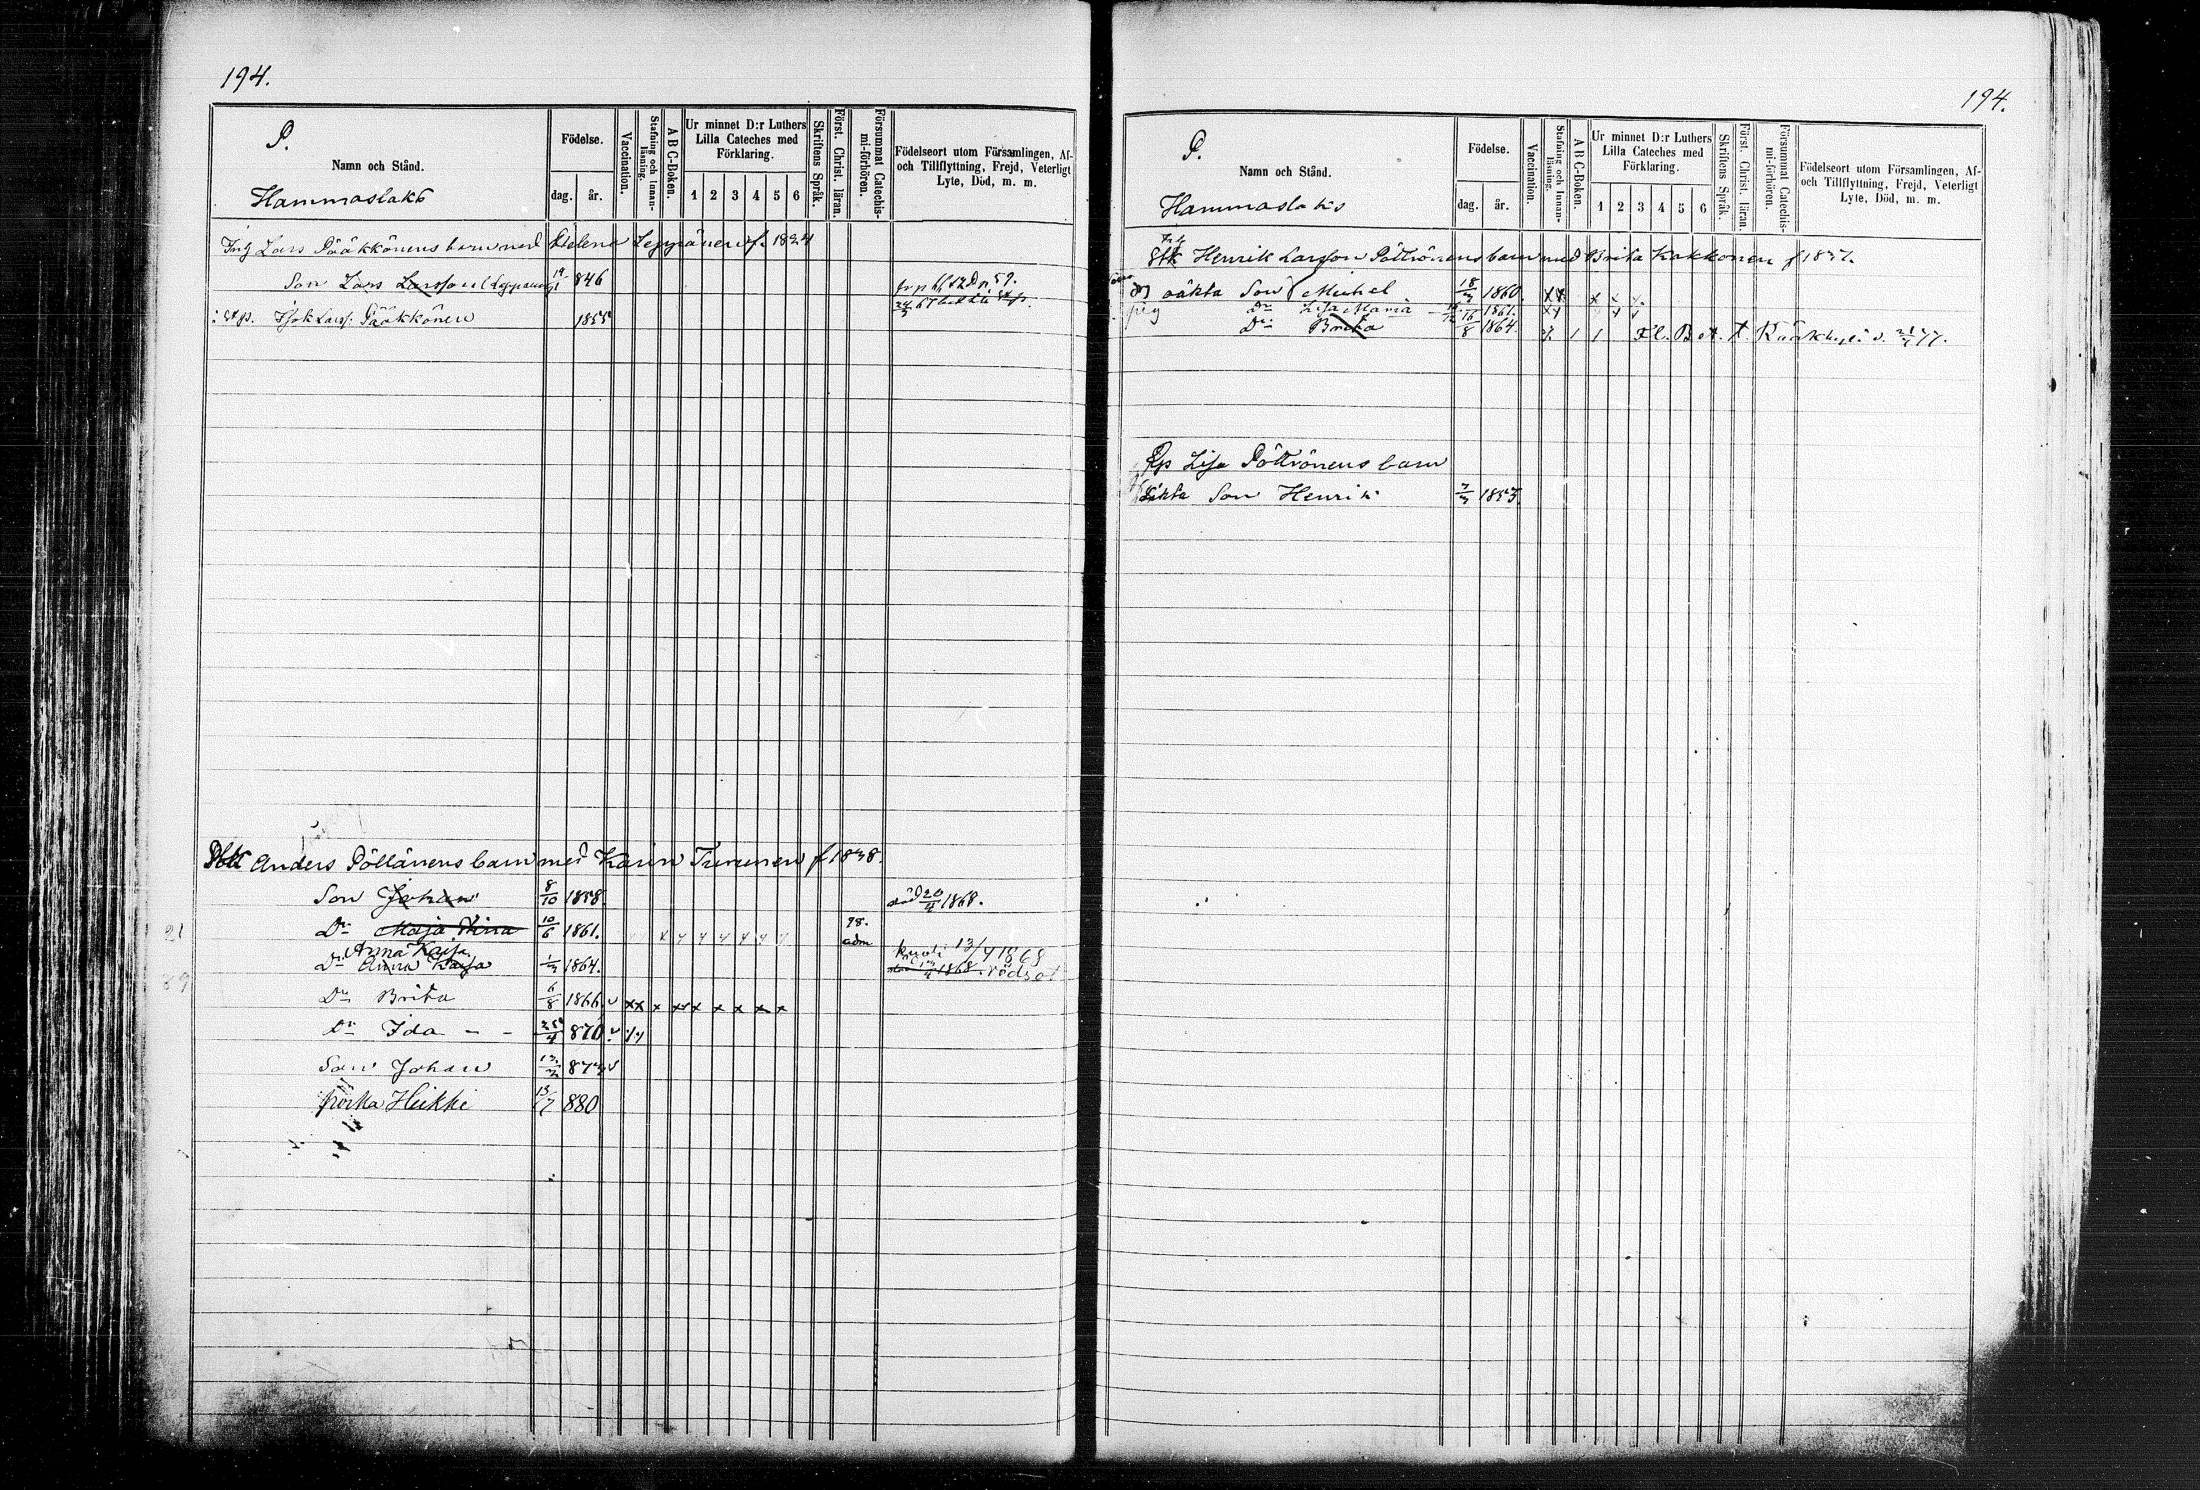 194.
P.
Namn och Stånd.
Hammaslaks
Födelse.
dag. år.
Vaccination.
Stafning och Innan-läsning.
A B C-Boken.
Ur minnet D:r Luthers Lilla Cateches med Förklaring.
1 2 3 4 5 6
Skriftens Språk.
Först. Christ. läran.
Försummat Catechis-mi-förhören.
Födelseort utom Församlingen, Af- och Tillflyttning, Frejd, Veterligt Lyte, Död, m. m.
Lars Pääkkönens barn med Helena Leppänen f. 1824
Son Lars Larsson (Leppänen) 19/1 846
Pääkkönen 1855
Anders Pöllänens barn med Karin Turunen f 1838.
Son Johan 8/10 1858. död 20/4 1868.
Dr Maja Stina 10/6 1861. 78. adm
Anna Kaisa kuoli 13/4 1868
Dr Anna Kaisa 1/3 1864. 1868. rödsot
Dr Brita 6/8 1866 v xx x xx x x x x x
Dr Ida - - 25/4 870 v
Son Johan 13/3 873 v
poika Heikki 13/7 880
194.
P.
Namn och Stånd.
Hammaslaks
Födelse.
dag. år.
Vaccination.
Stafning och Innan-läsning.
A B C-Boken.
Ur minnet D:r Luthers Lilla Cateches med Förklaring.
1 2 3 4 5 6
Skriftens Språk.
Först. Christ. läran.
Försummat Catechis-mi-förhören.
Födelseort utom Församlingen, Af- och Tillflyttning, Frejd, Veterligt Lyte, Död, m. m.
Henrik Larsson Pöllönens barn med Brita Kakkonen f 1837.
oäkta Son Michel 18/3 1860. xx x x x
Dr Lisa Maria 1861.
Dr Brita 16/8 1864.
Lisa Pöllönens barn
oäkta Son Henrik 1853.